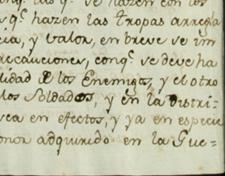 q.e hazen las tropas arregla
cia, y valor, en breve se im
recauciones, conq.e se deve ha
lidad de los Enemigos, y el otro
los Soldados, y en la distri-
sea en efectos, y ya en especie
onor adquirido en la Gue-